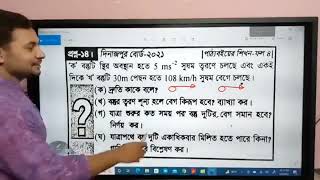 প্রশ্ন-১৪। দিনাজপুর বোর্ড-২০২১ [পাঠ্যবইয়ের শিখন-ফল ৪
'ক' বস্তুটি স্থির অবস্থান হতে 5 ms⁻² সুষম ত্বরণে চলছে এবং একই
দিকে 'খ' বস্তুটি 30m পেছন হতে 108 km/h সুষম বেগে চলছে।
(ক) দ্রুতি কাকে বলে?
(খ) বস্তুর ত্বরণ শূন্য হলে বেগ কিরূপ হবে? ব্যাখ্যা কর।
(গ) যাত্রা শুরুর কত সময় পর বস্তু দুটির বেগ সমান হবে?
নির্ণয় কর।
(ঘ) যাত্রাপথে বস্তু দুটি একাধিকবার মিলিত হতে পারে কিনা?
বিশ্লেষণ কর।